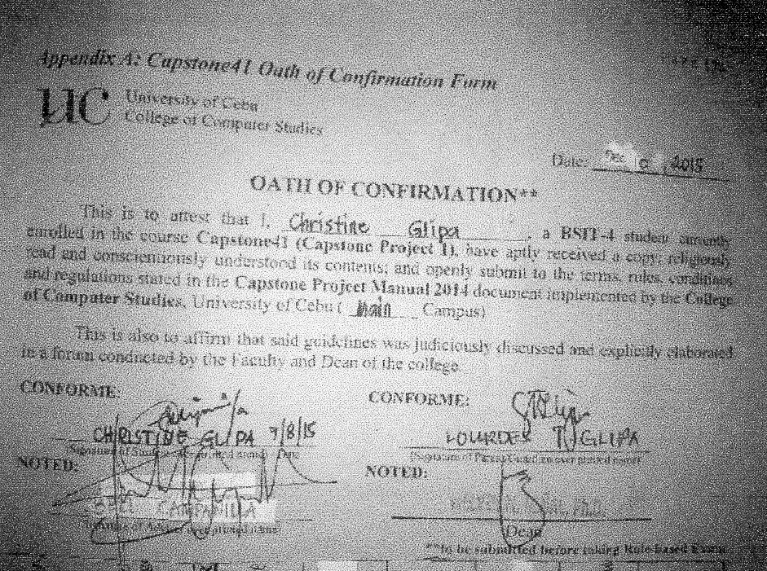 Appendix A: Capstone41 Oath of Confirmation Form
UC
University of Cebu
College of Computer Studies
Date: Dec 2015
OATH OF CONFIRMATION**
This is to attest that I, Christine Glipa, a BSIT-4 student currently
enrolled in the course Capstone41 (Capstone Project 1), have aptly received a copy; religiously
read and conscientiously understood its contents; and openly submit to the terms, rules, conditions
and regulations stated in the Capstone Project Manual 2014 document implemented by the College
of Computer Studies, University of Cebu ( Main Campus)
This is also to affirm that said guidelines was judiciously discussed and explicitly elaborated
in a forum conducted by the Faculty and Dean of the college.
CONFORME:
CONFORME:
CHRISTINE GLIPA 7/8/15
LOURDES T. GLIPA
(Signature of Parent/Guardian over printed name)
NOTED:
NOTED:
CAMPANILLA
Dean
**to be submitted before taking Rule-based Exam